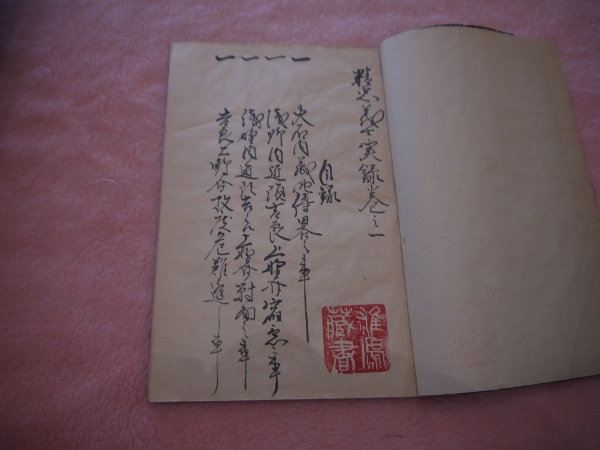 精忠義士実録巻之一
目録
一 大石内蔵助伝畧之事
一 浅野内匠頭吉良上野介宿意之事
一 浅野内匠頭吉良上野介対面之事
一 吉良上野介殿中危難遁之事
蔵書